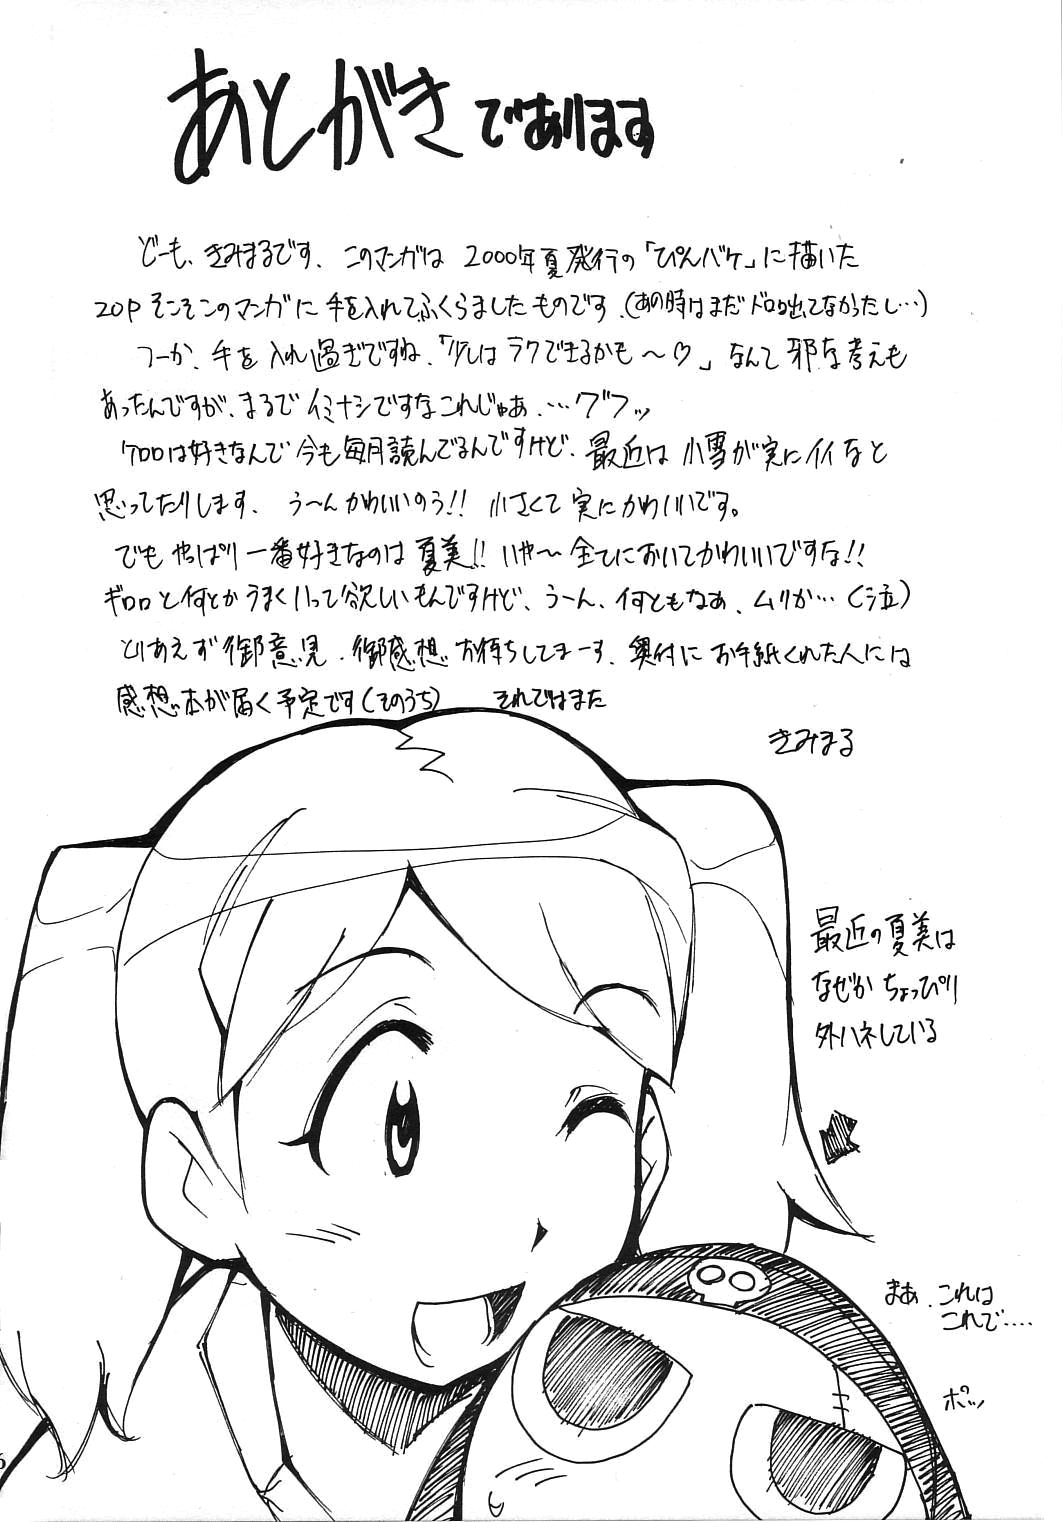 あとがきであります
どーも、きみまるです、このマンガは 2000年夏発行の「ぴんバケ」に描いた
20Pそこそこのマンガに手を入れてふくらましたものです、(あの時はまだドロロ出てなかったし…)
つーか、手を入れ過ぎですね、「少しはラクできるかも〜♡」なんて邪な考えも
あったんですが、まるでイミナシですなこれじゃあ、…グフッ
ケロロは好きなんで今も毎月読んでるんですけど、最近は小雪が実にイイなと
思ってたりします、う〜んかわいいのう!! 小さくて実にかわいいです。
でもやっぱり一番好きなのは夏美!! いや〜全てにおいてかわいいですな!!
ギロロと何とかうまくいって欲しいもんですけど、う〜ん、何ともなあ、ムリか…(泣)
とりあえず御意見、御感想お待ちしてまーす、奥付にお手紙くれた人には
感想本が届く予定です(そのうち) それではまた
きみまる
最近の夏美は
なぜかちょっぴり
外ハネしている
まあ、これは
これで....
ポッ
6